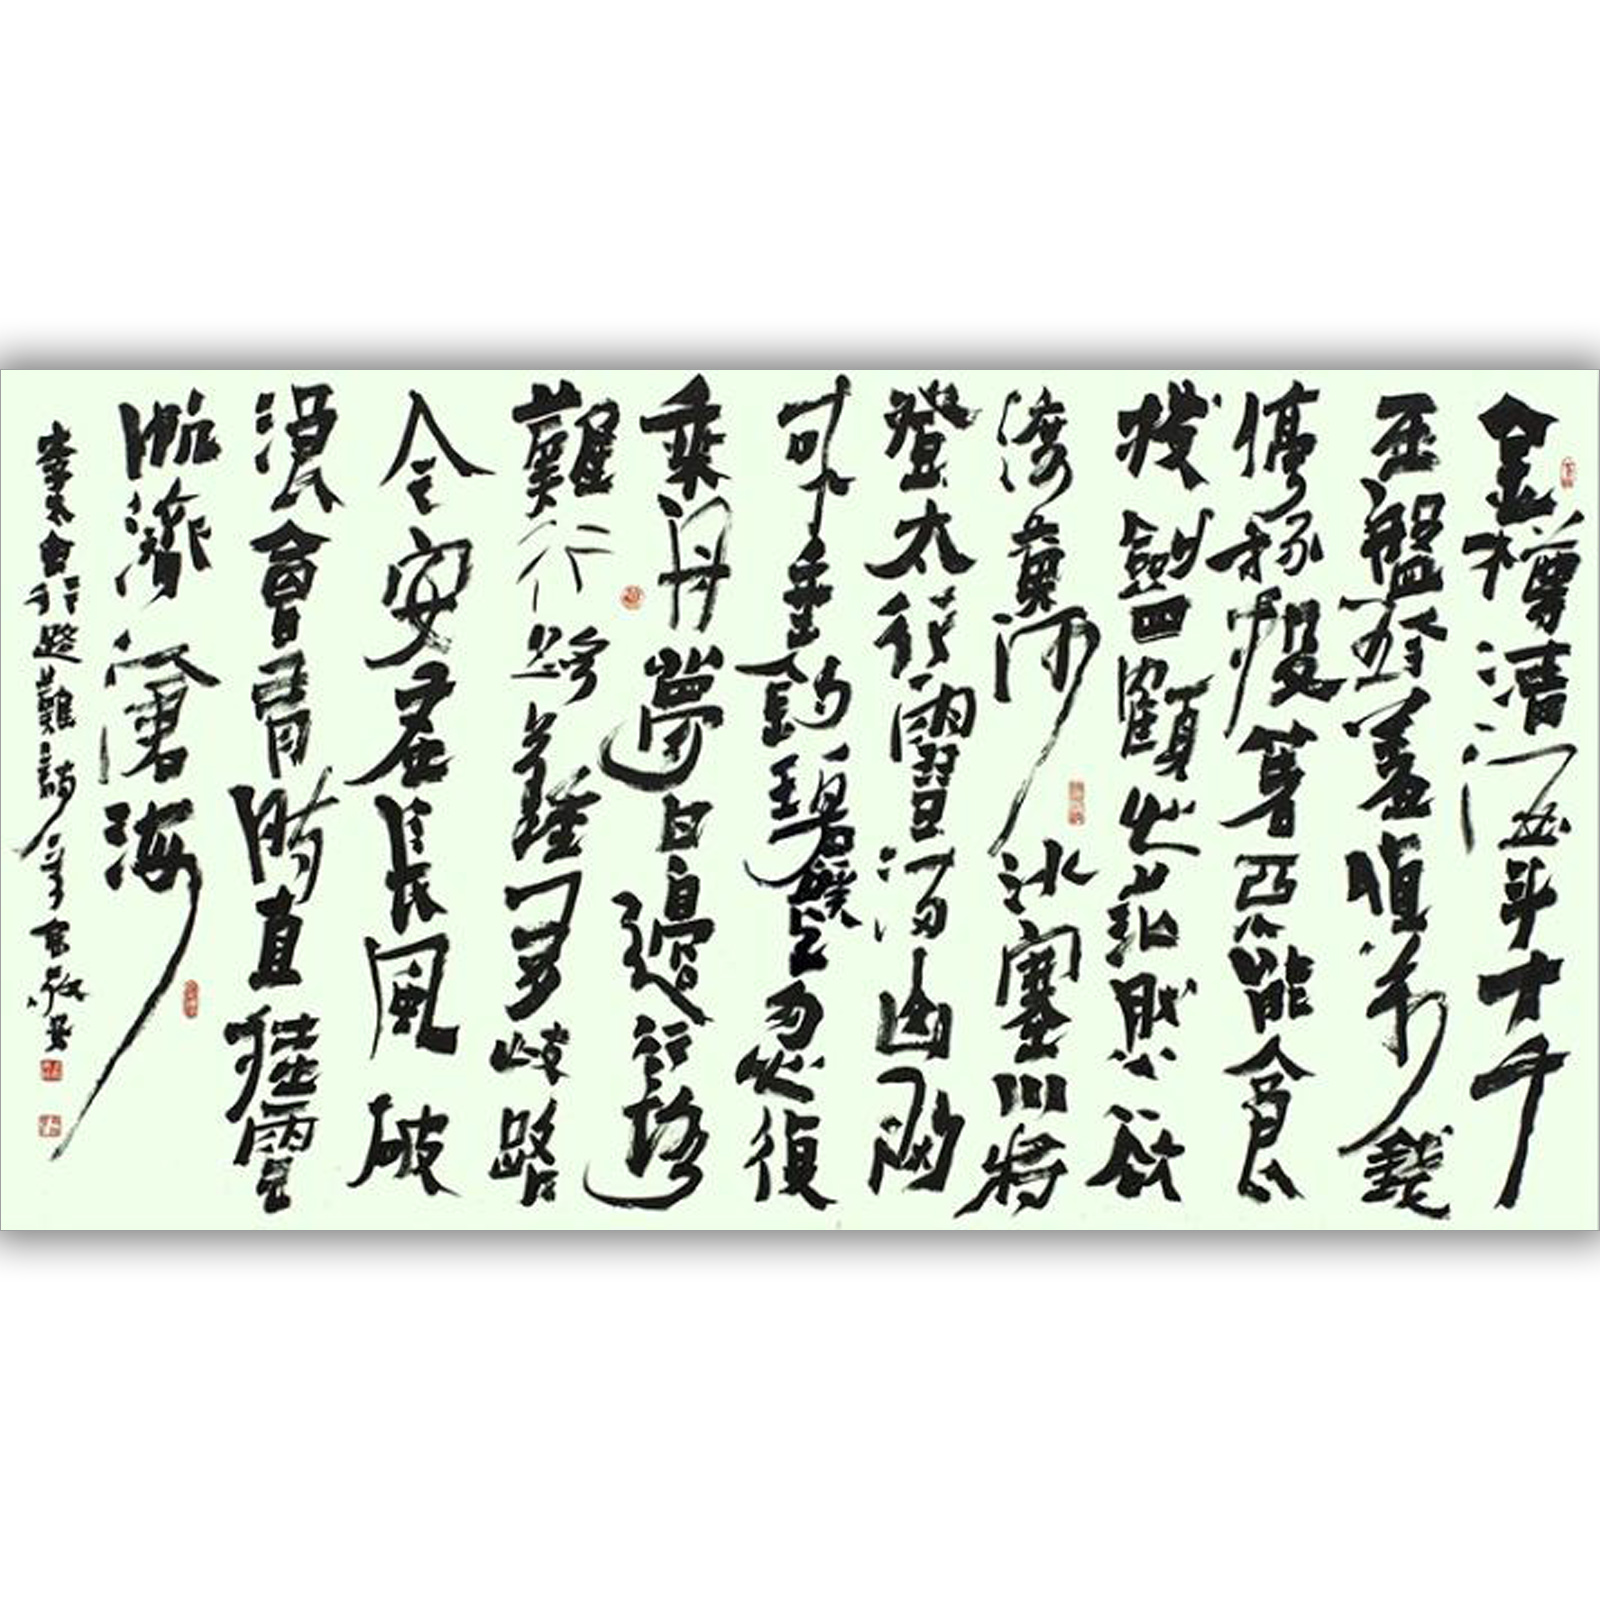 金樽清酒斗十千
玉盤珍羞值万錢
停杯投箸不能食
拔劍四顧心茫然欲
渡黄河冰塞川將
登太行雪滿山閑
來垂釣碧溪上忽復
乘舟夢日邊行路
難行路難多歧路
今安在長風破
浪會有時直掛雲
帆濟滄海
李太白行路難詩